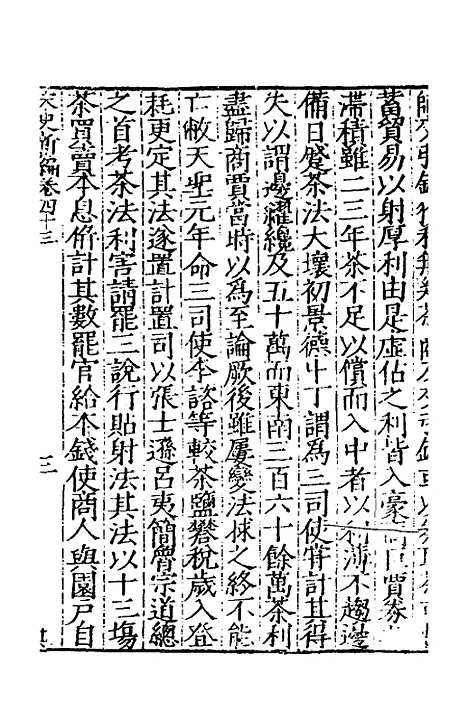 蓄貿易以射厚利由是虛估之利皆入豪
滯積雖二三年茶不足以償而入中者以利薄不趨邊
備日蹙茶法大壞初景德中丁謂為三司使甞計其得
失以謂邊糴纔及五十萬而東南三百六十餘萬茶利
盡歸商賈當時以為至論厥後雖屢變法捄之終不能
亡敝天聖元年命三司使李諮等較茶鹽礬稅歲入登
耗更定其法遂置計置司以張士遜呂夷簡魯宗道緫
之首考茶法利害請罷三說行貼射法其法以十三塲
茶買賣本息併計其數罷官給本錢使商人與園戸自
宋史新編卷四十三
三